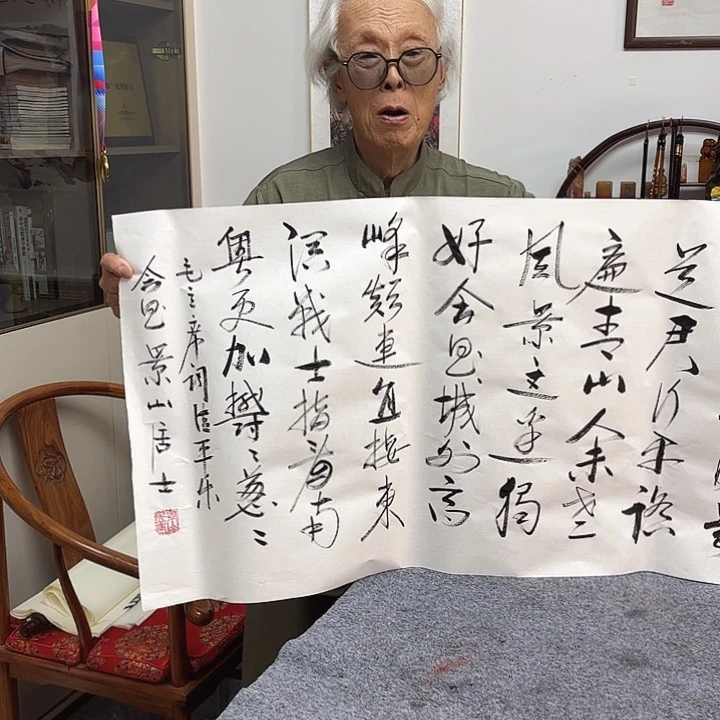 道君行早踏
遍青山人未老
風景这边獨
好会昌城外高
峰颠連直接東
溟战士指看南
粵更加鬱〻葱〻
毛主席词清平乐
会昌 景山居士